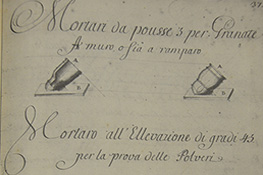 Mortari da pousse 3 per Granate
A' muro, o sia a ramparo
A.
B.
A.
B.
Mortaro all'Ellevazione di gradi 45
per la prova delle Polveri